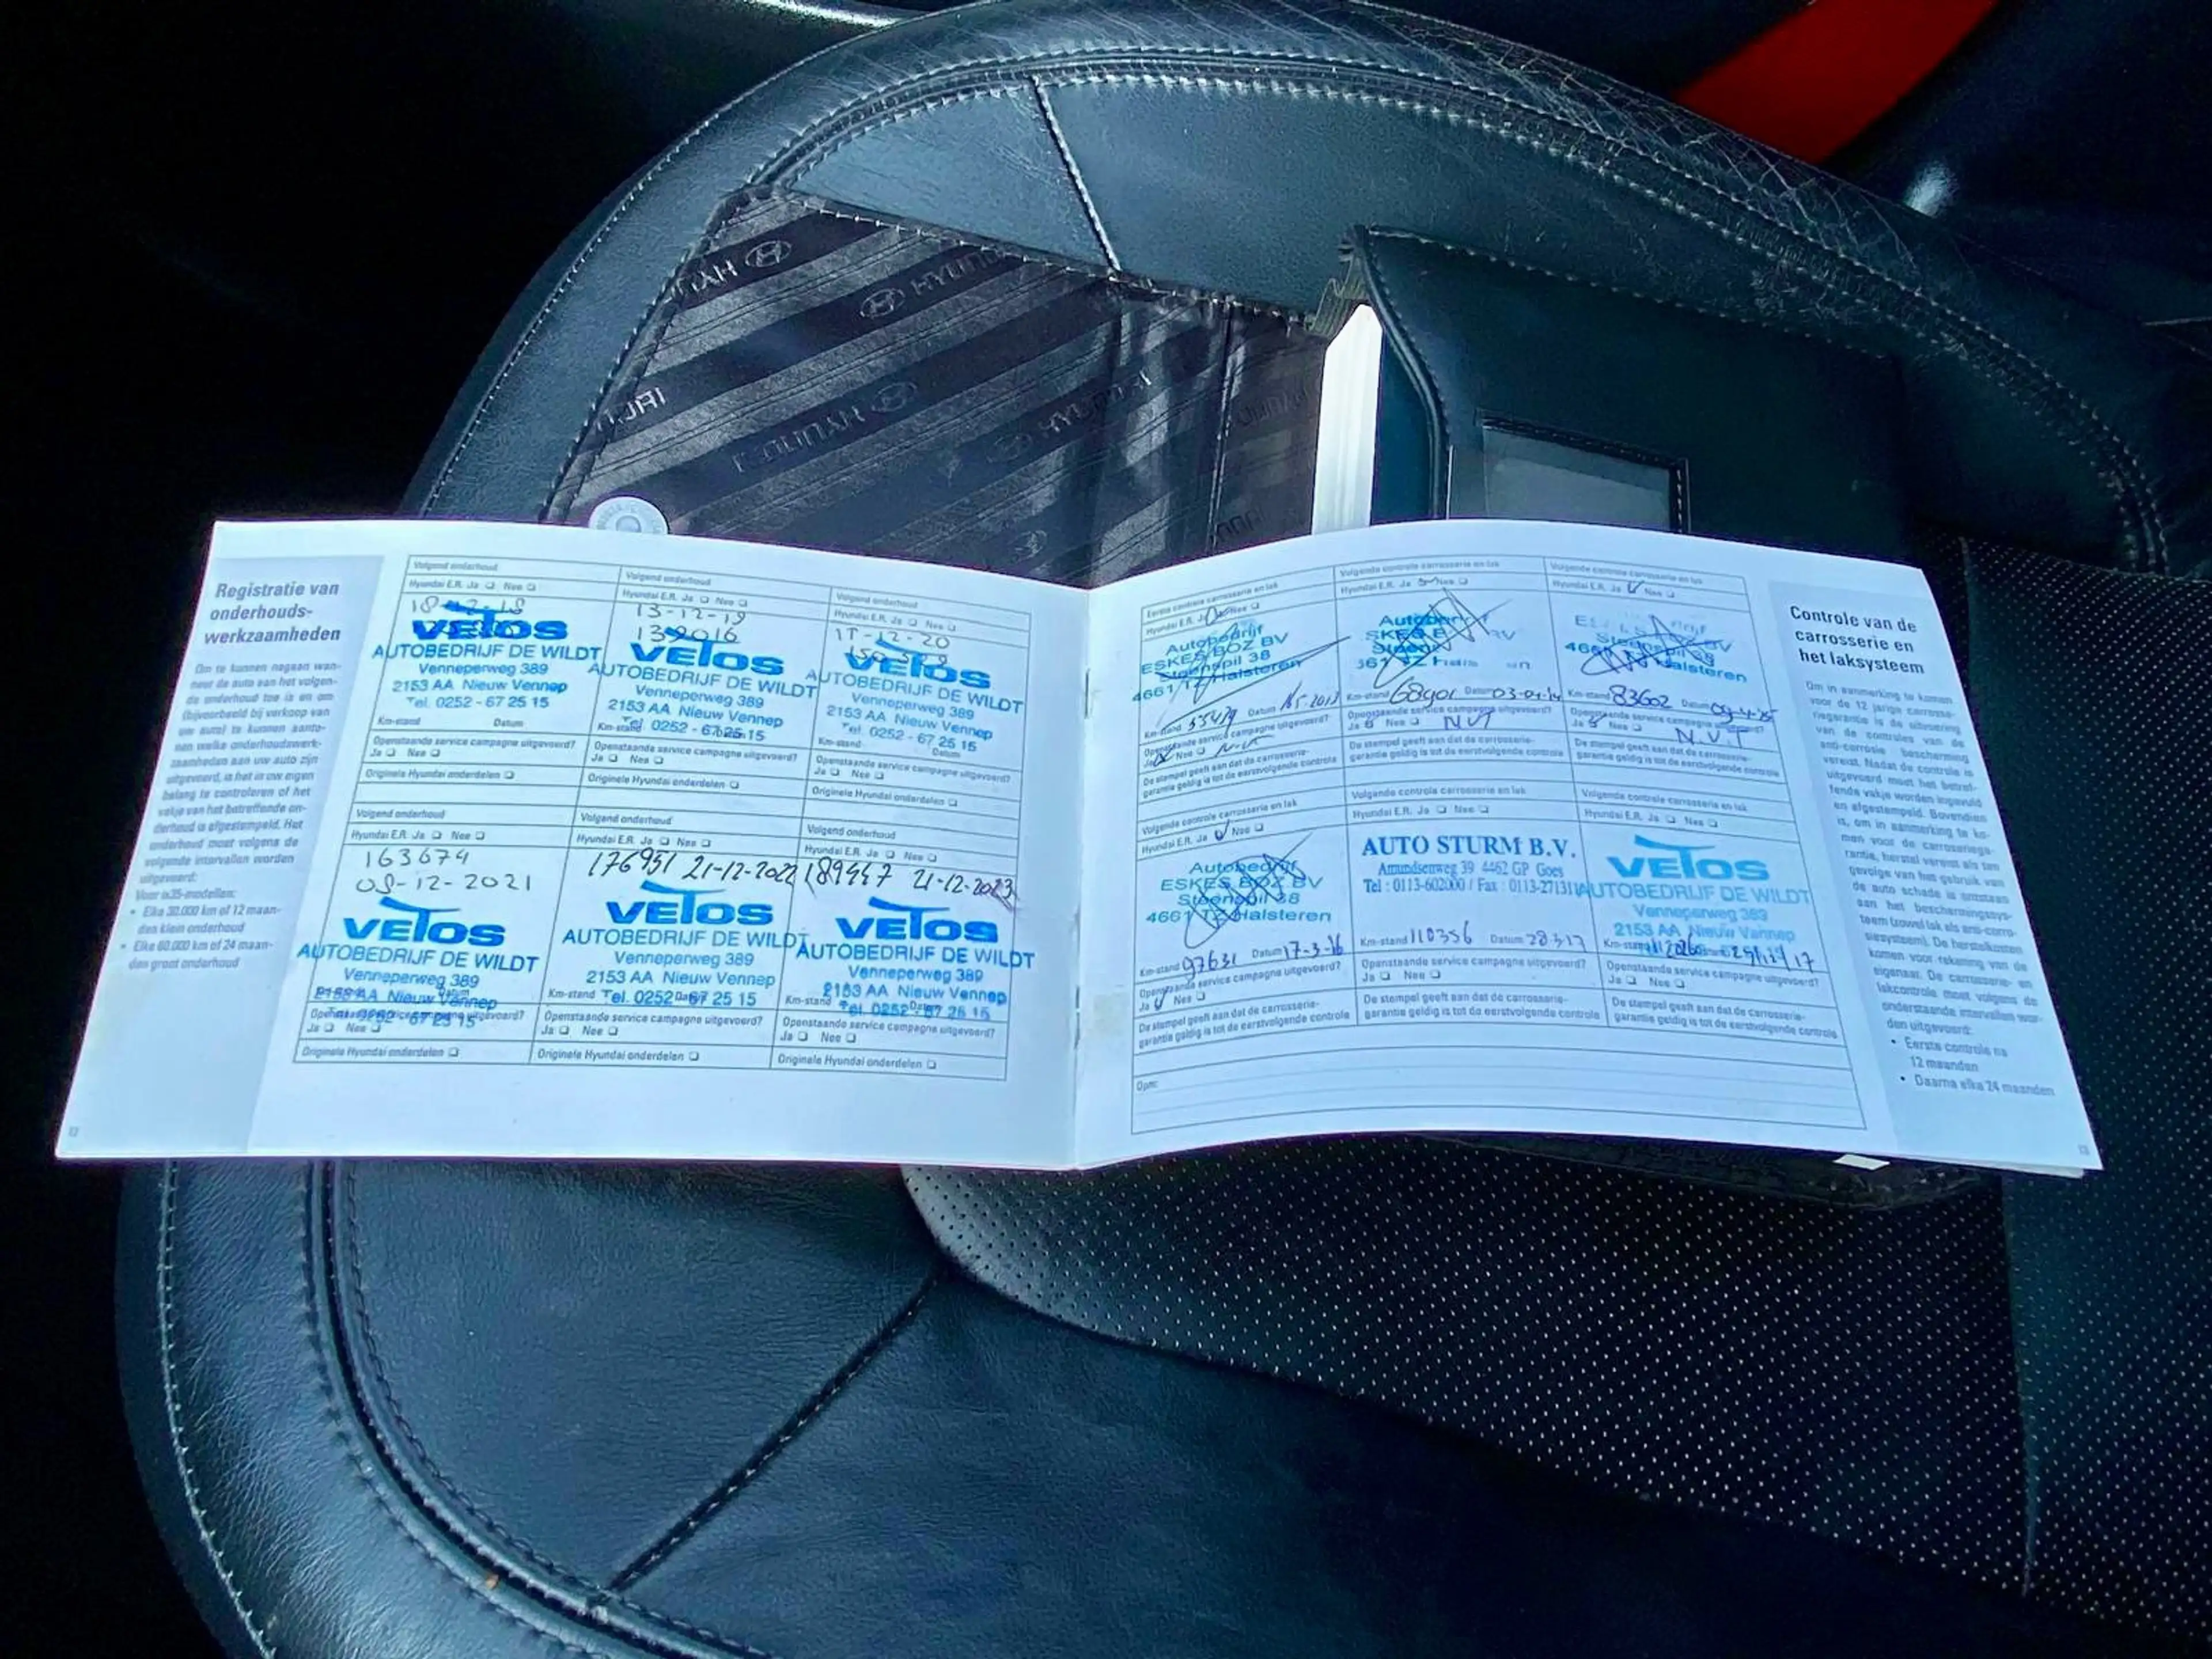 HYUNDAI
HYUNDAI
HYUNDAI
Registratie van
onderhouds-
werkzaamheden
Om te kunnen nagaan wan-
neer de auto aan het volgen-
de onderhoud toe is en om
(bijvoorbeeld bij verkoop van
uw auto) te kunnen aanto-
nen welke onderhoudswerk-
zaamheden aan uw auto zijn
uitgevoerd, is het in uw eigen
belang te controleren of het
vakje van het betreffende on-
derhoud is afgestempeld. Het
onderhoud moet volgens de
volgende intervallen worden
uitgevoerd:
• Elke 30.000 km of 12 maan-
den klein onderhoud
• Elke 60.000 km of 24 maan-
den groot onderhoud
Volgend onderhoud
Hyundai E.R. Ja ❑ Nee ❑
VELOS
AUTOBEDRIJF DE WILDT
Venneperweg 389
2153 AA Nieuw Vennep
Tel. 0252 - 67 25 15
Km-stand Datum
Openstaande service campagne uitgevoerd?
Ja ❑ Nee ❑
Originele Hyundai onderdelen ❑
Volgend onderhoud
Hyundai E.R. Ja ❑ Nee ❑
13-12-19
139016
VELOS
AUTOBEDRIJF DE WILDT
Venneperweg 389
2153 AA Nieuw Vennep
Km-stand Tel. 0252 - 67 25 15
Openstaande service campagne uitgevoerd?
Ja ❑ Nee ❑
Originele Hyundai onderdelen ❑
Volgend onderhoud
Hyundai E.R. Ja ❑ Nee ❑
VELOS
AUTOBEDRIJF DE WILDT
Venneperweg 389
2153 AA Nieuw Vennep
Tel. 0252 - 67 25 15
Km-stand Datum
Openstaande service campagne uitgevoerd?
Ja ❑ Nee ❑
Originele Hyundai onderdelen ❑
Volgend onderhoud
Hyundai E.R. Ja ❑ Nee ❑
163674
08-12-2021
VELOS
AUTOBEDRIJF DE WILDT
Venneperweg 389
2153 AA Nieuw Vennep
Datum
Openstaande service campagne uitgevoerd?
Ja ❑ Nee ❑
Originele Hyundai onderdelen ❑
Volgend onderhoud
Hyundai E.R. Ja ❑ Nee ❑
176951 21-12-2022
VELOS
AUTOBEDRIJF DE WILDT
Venneperweg 389
2153 AA Nieuw Vennep
Km-stand Tel. 0252 - 67 25 15
Openstaande service campagne uitgevoerd?
Ja ❑ Nee ❑
Originele Hyundai onderdelen ❑
Volgend onderhoud
Hyundai E.R. Ja ❑ Nee ❑
189447 21-12-2023
VELOS
AUTOBEDRIJF DE WILDT
Venneperweg 389
2153 AA Nieuw Vennep
Km-stand Tel. 0252 - 67 25 15
Openstaande service campagne uitgevoerd?
Ja ❑ Nee ❑
Originele Hyundai onderdelen ❑
Eerste controle carrosserie en lak
Hyundai E.R. Ja Nee ❑
Autobedrijf
ESKES BOZ BV
Steenspil 38
4661 TZ Halsteren
Km-stand 53479 Datum
Openstaande service campagne uitgevoerd?
Ja Nee ❑
De stempel geeft aan dat de carrosserie-
garantie geldig is tot de eerstvolgende controle
Volgende controle carrosserie en lak
Hyundai E.R. Ja Nee ❑
Km-stand 68901 Datum 03-04-14
Openstaande service campagne uitgevoerd?
Ja Nee ❑ NVT
De stempel geeft aan dat de carrosserie-
garantie geldig is tot de eerstvolgende controle
Volgende controle carrosserie en lak
Hyundai E.R. Ja Nee ❑
Steenspil 38
Halsteren
Km-stand 83602 Datum
Openstaande service campagne uitgevoerd?
Ja Nee ❑ N.V.T
De stempel geeft aan dat de carrosserie-
garantie geldig is tot de eerstvolgende controle
Volgende controle carrosserie en lak
Hyundai E.R. Ja Nee ❑
Autobedrijf
ESKES BOZ BV
Steenspil 38
4661 TZ Halsteren
Km-stand 97631 Datum 17-3-16
Openstaande service campagne uitgevoerd?
Ja Nee ❑
De stempel geeft aan dat de carrosserie-
garantie geldig is tot de eerstvolgende controle
Volgende controle carrosserie en lak
Hyundai E.R. Ja ❑ Nee ❑
AUTO STURM B.V.
Amundsenweg 39 4462 GP Goes
Tel : 0113-602000 / Fax : 0113-271311
Km-stand 110356 Datum 28317
Openstaande service campagne uitgevoerd?
Ja ❑ Nee ❑
De stempel geeft aan dat de carrosserie-
garantie geldig is tot de eerstvolgende controle
Volgende controle carrosserie en lak
Hyundai E.R. Ja ❑ Nee ❑
VELOS
AUTOBEDRIJF DE WILDT
Venneperweg 389
2153 AA Nieuw Vennep
Km-stand
Openstaande service campagne uitgevoerd?
Ja ❑ Nee ❑
De stempel geeft aan dat de carrosserie-
garantie geldig is tot de eerstvolgende controle
Opm:
Controle van de
carrosserie en
het laksysteem
Om in aanmerking te komen
voor de 12 jarige carrosse-
riegarantie is de uitvoering
van de controles van de
anti-corrosie bescherming
vereist. Nadat de controle is
uitgevoerd moet het betref-
fende vakje worden ingevuld
en afgestempeld. Bovendien
is, om in aanmerking te ko-
men voor de carrosseriega-
rantie, herstel vereist als ten
gevolge van het gebruik van
de auto schade is ontstaan
aan het beschermingssys-
teem (zowel lak als anti-corro-
siesysteem). De herstelkosten
komen voor rekening van de
eigenaar. De carrosserie- en
lakcontrole moet volgens de
onderstaande intervallen wor-
den uitgevoerd:
• Eerste controle na
12 maanden
• Daarna elke 24 maanden